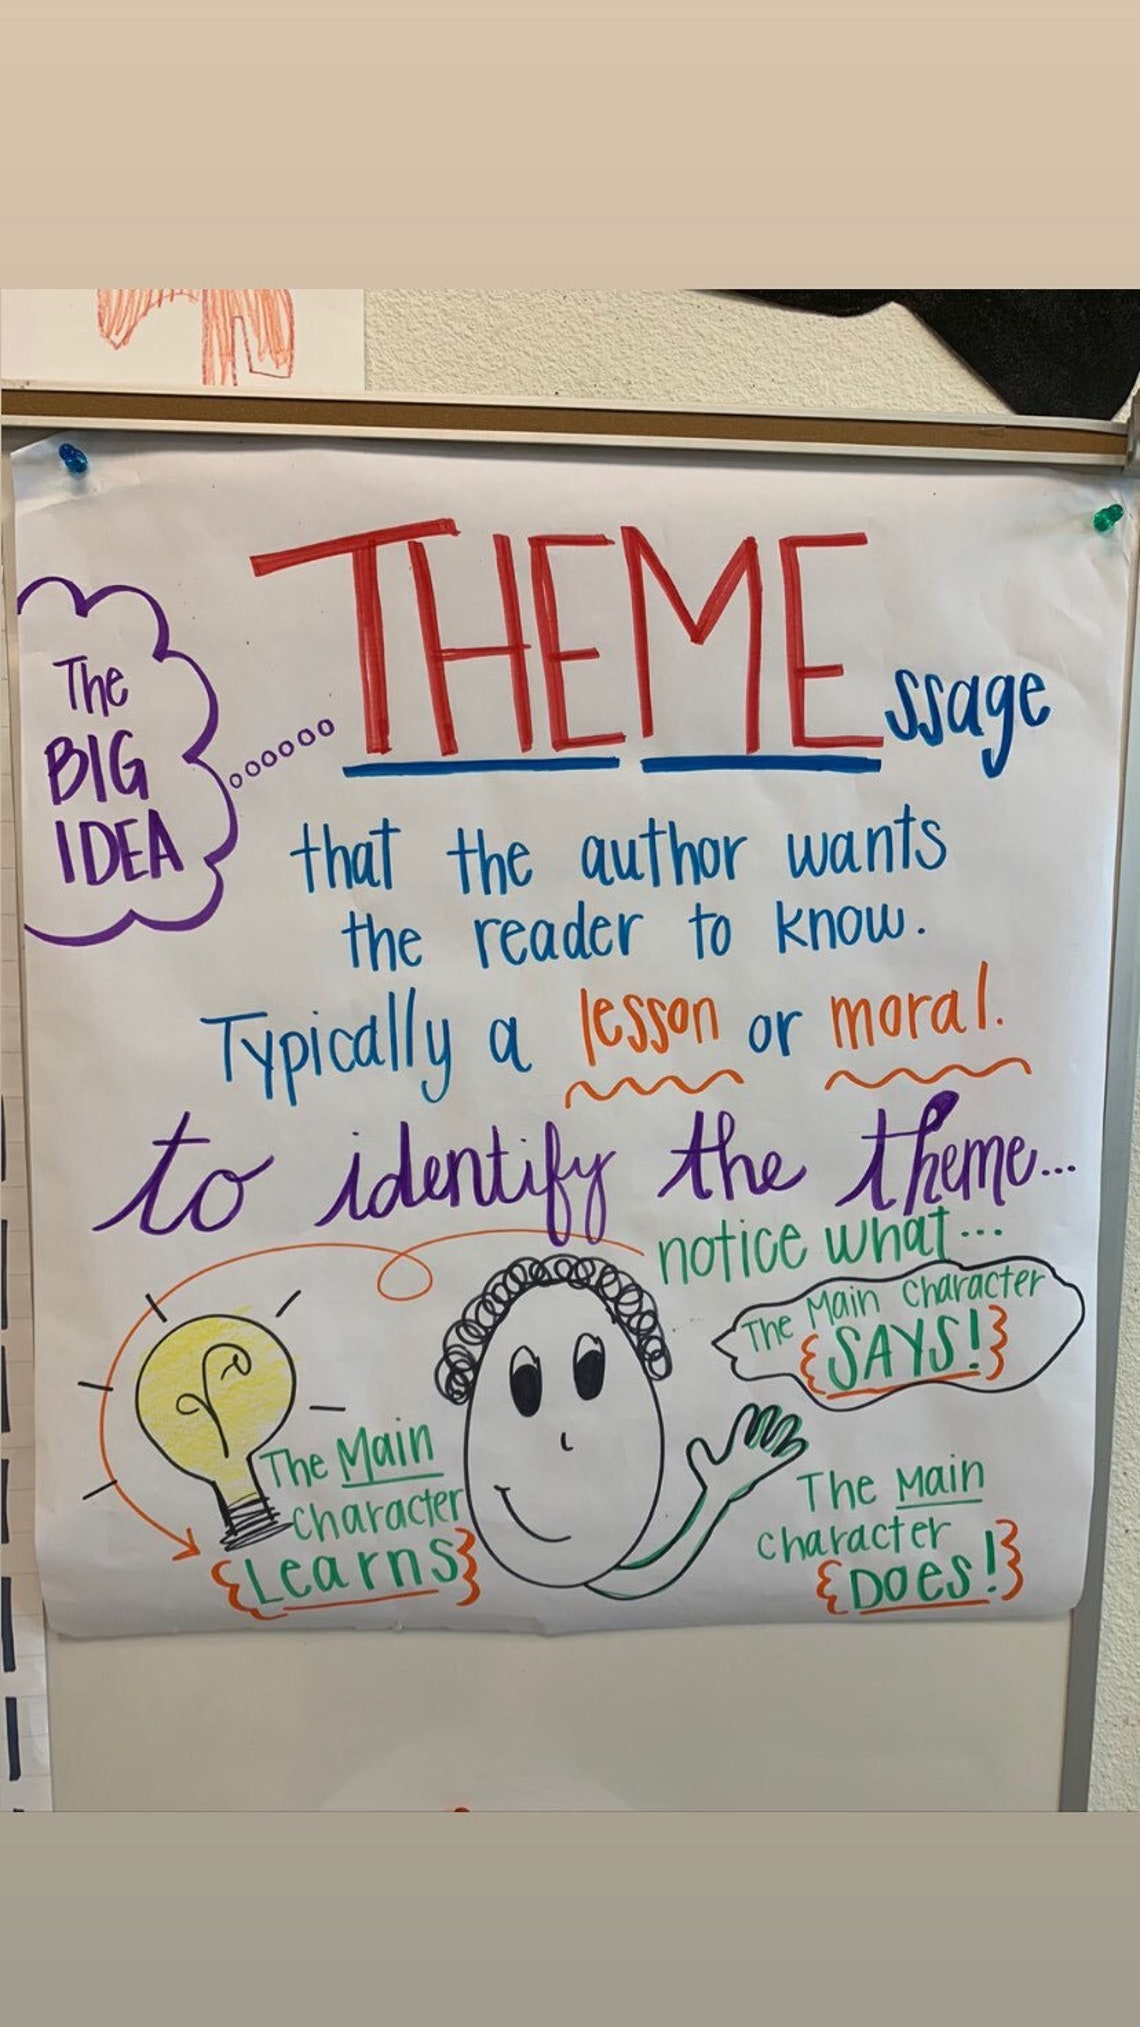 The
BIG
IDEA
THEMEssage
that the author wants
the reader to know.
Typically a lesson or moral.
to identify the theme...
notice what...
The Main Character
{SAYS!}
The Main
character
{Learns}
The Main
character
{DOES!}